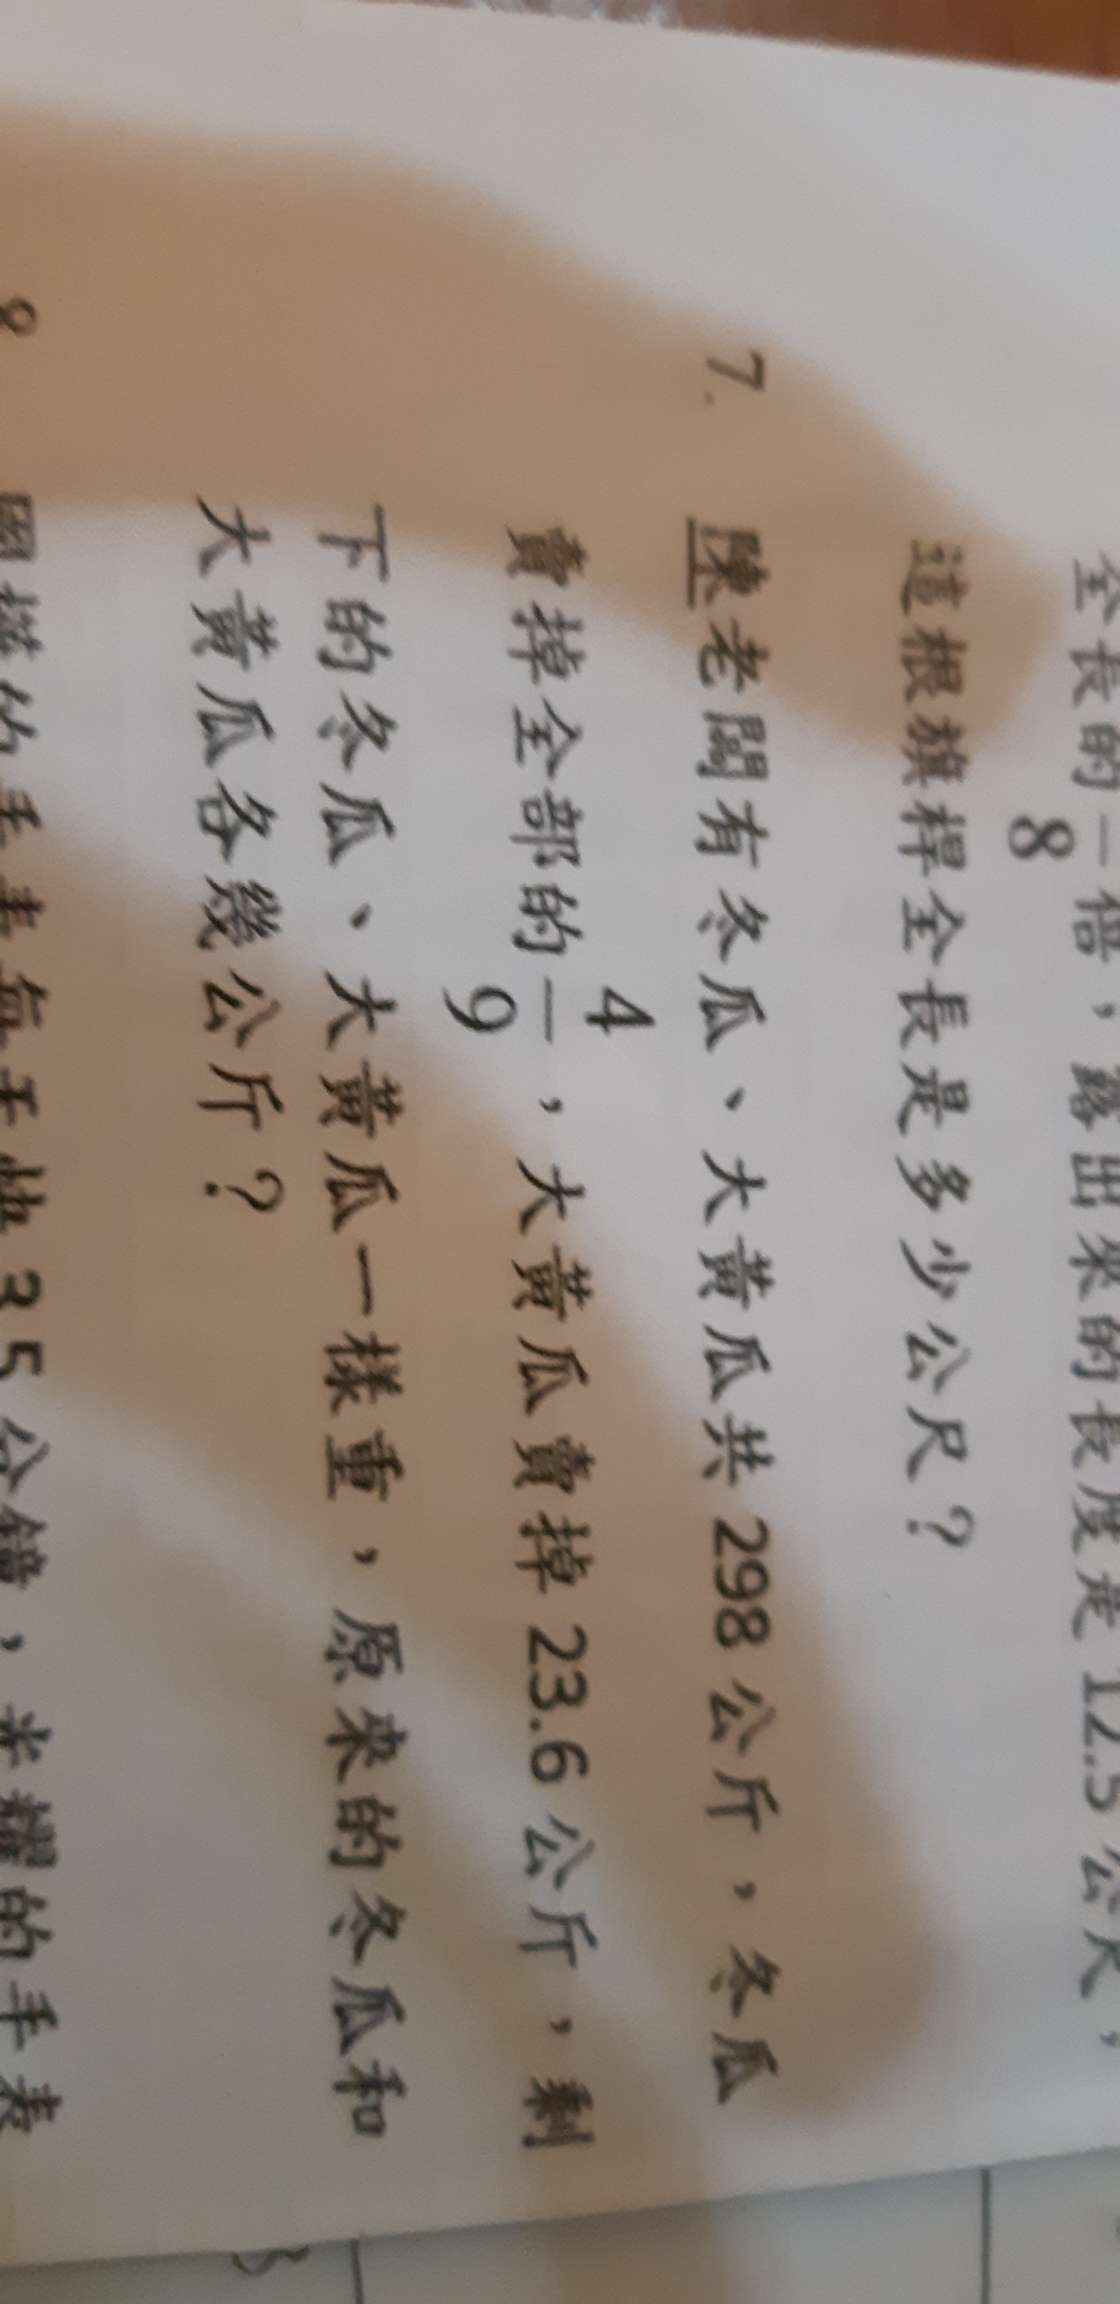 全長的—倍，露出來的長度是 12.5 公尺，
8
這根旗桿全長是多少公尺？
7. 陳老闆有冬瓜、大黃瓜共 298 公斤，冬瓜
賣掉全部的4/9，大黃瓜賣掉 23.6 公斤，剩
下的冬瓜、大黃瓜一樣重，原來的冬瓜和
大黃瓜各幾公斤？
的手表每天快 35 分鐘，米耀的手表